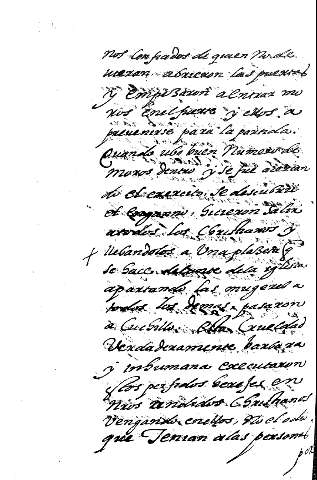 nos confiados de quien No de
vieran abrieron las puertas
y empesaron a entrar mo
ros en el fuerte y ellos a
prevenirse para la
Quando ubo buen Numero de
moros dentro y se fue
do el exercito se descubrio
el engaño, hicieron salir
a todos los Christianos y
llebandolos a Una plasa q
se hace delante de la iglesia
apartando las mugeres a
todos los demas pasaron
a Cuchillo. esta Crueldad
Verdaderamente barbara
y inhumana executaron
los perfidos hereges en
Nros rendidos Christianos
Vengando en ellos, el odio
que Tenian a las personas